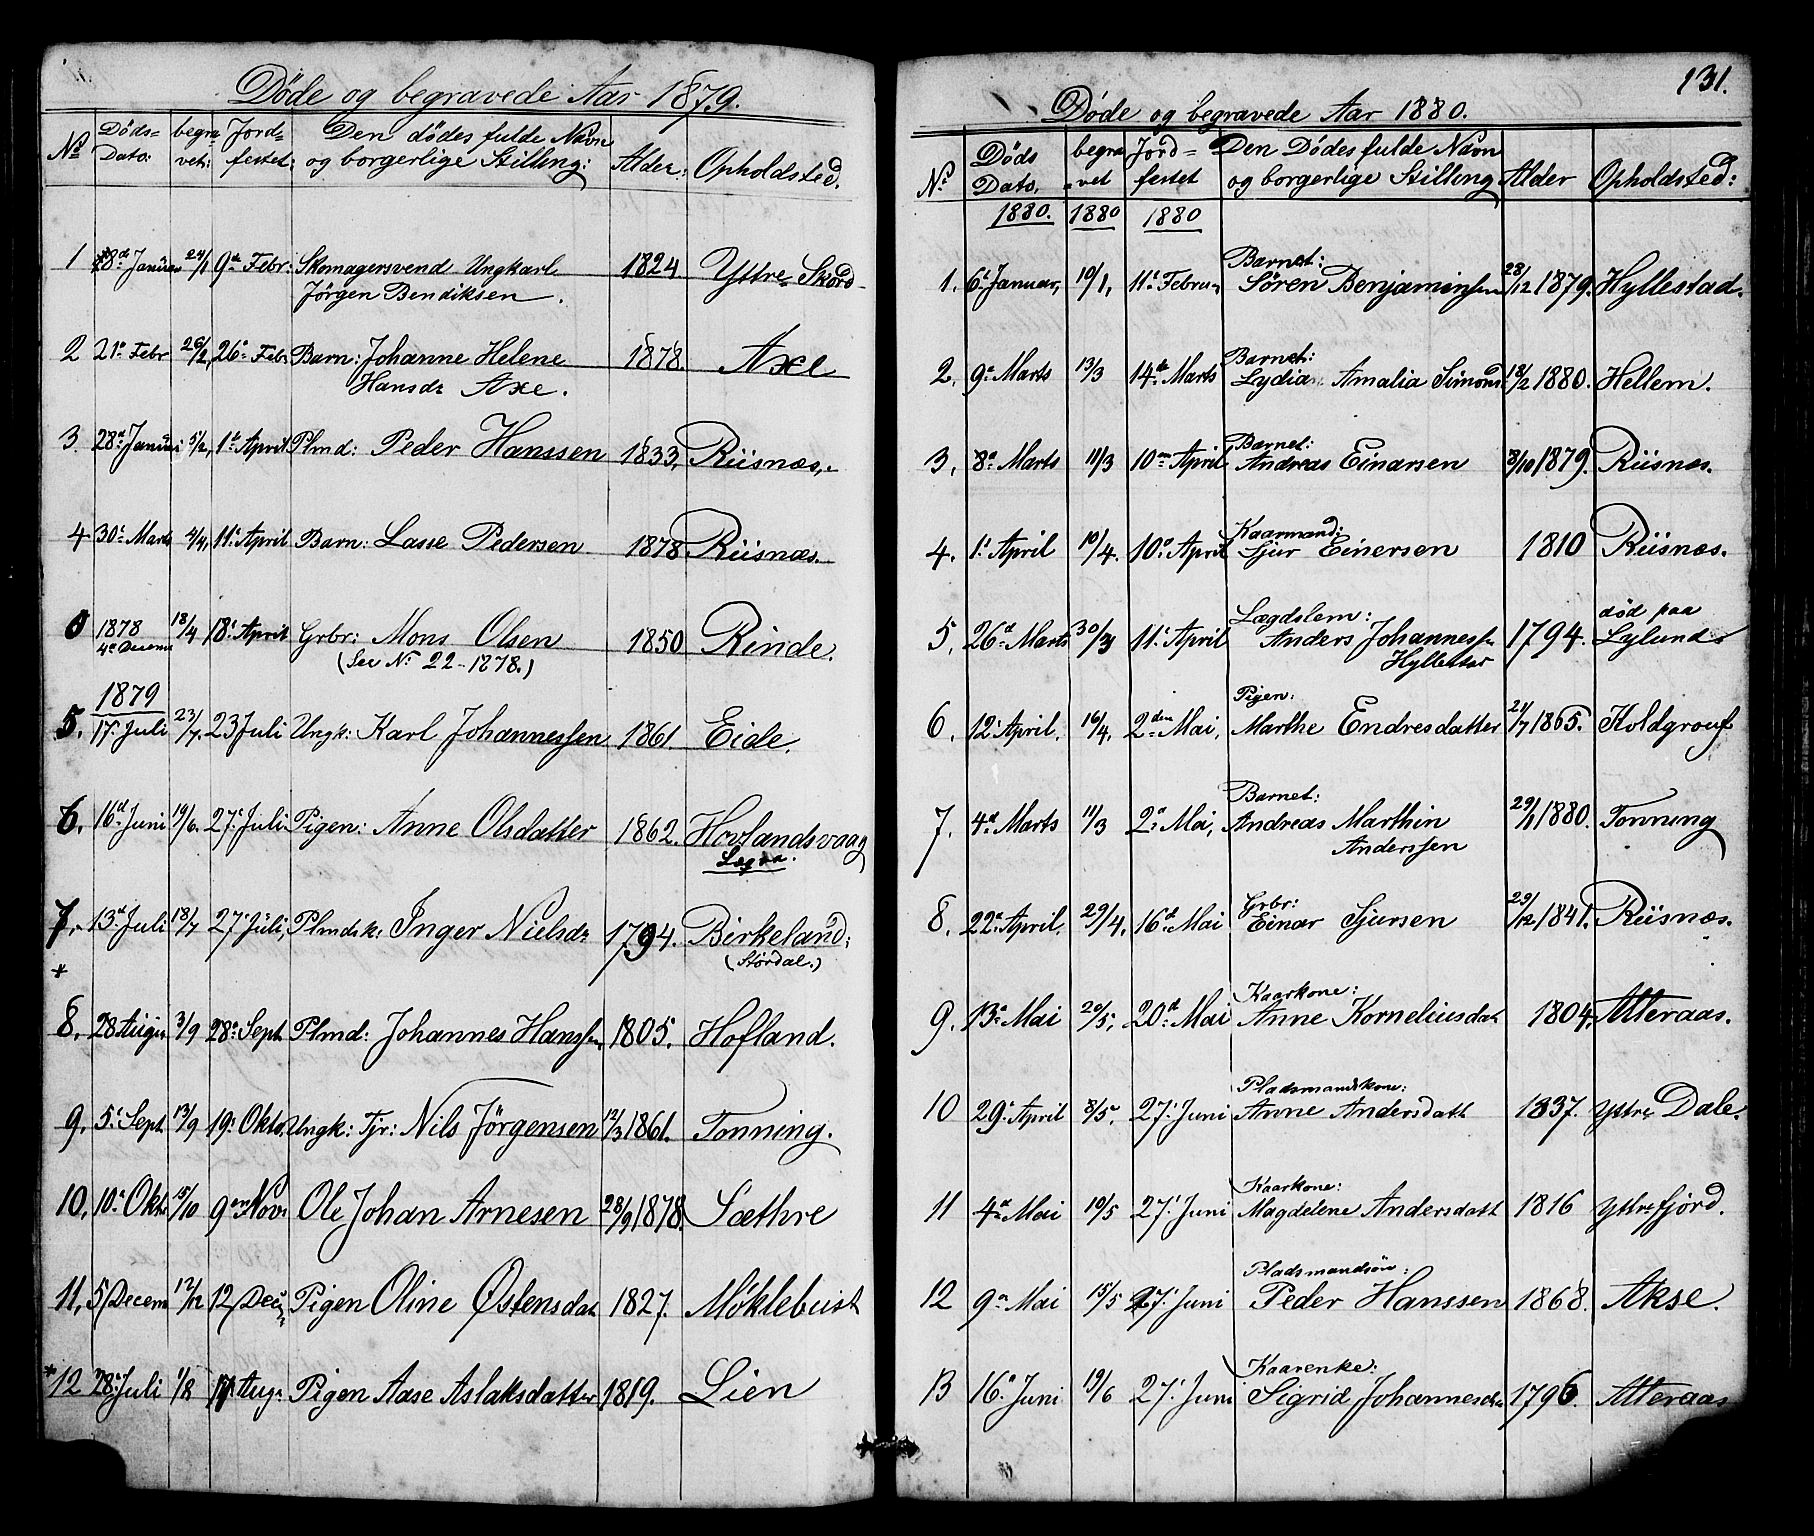 Døde og begravede Aar 1879.
No Døds= Dato: begra= vet: Jord= festet: Den dødes fulde Navn og borgerlige Stilling: Alder: Opholdsted.
1 28d Januar 24/1 9de Febr: Skomagersvend Ungkarl 1824 Yttre Skord
Jörgen Bendiksen.
2 21e Febr 26/2, 26e Febr. Barn: Johanne Helene 1878. Axe
Hansdr Axe.
3. 28d Januar 5/2, 1te April Plmd: Peder Hanssen 1833, Riisnæs,
4 30te Marts 4/4, 11te April Barn: Lasse Pedersen 1878 Riisnæs.
0 1878 4de Decem 18/4 18de April Grbr: Mons Olsen 1850 Rinde.
(See No 22-1878.)
1879
5. 17. Juli 23/7. 23 Juli Ungk: Karl Johannessen 1861 Eide.
6. 16d Juni 19/6. 27: Juli Pigen: Anne Olsdatter 1862. Hovlandsvaag
7. 13d Juli 18/7 27: Juli, Plmdsk: Inger Nielsdr 1794. Birkeland:
(Stördal.)
*
8. 28 August 3/9 28: Sept Plmd: Johannes Hanssen 1805. Hofland.
9. 5: Sept. 13/9 19: Oktor Ungk: Tjr: Nils Jörgensen 12/3 1861. Tonning.
10. 10: Okt. 15/10 9en Nov. Ole Johan Arnesen 28/9 1878. Sæthre
11. 5/Decem 12/12 12/Dec. Pigen Oline Østensdat 1827. Møklebust
* 12 28: Juli 1/8 17 Aug. Pigen Aase Aslaksdatter 1819. Lien
131.
Døde og begravede Aar 1880.
No Døds Dato. begra =vet Jord= festet Den Dødes fulde Navn og borgerlige Stilling Alder Opholdsted:
1880. 1880 1880
Barnet:
1. 6t Januar, 10/1, 11te Februar Søren Benjaminsen 28/12 1879. Hyllestad.
Barnet:
2. 9de Marts 13/3 14de Marts Lydia Amalia Simons. 18/2 1880. Hellem.
Barnet:
3. 8de Marts 11/3 10de April Andreas Einarsen 8/10 1879. Riisnæs.
Kaarmand:
4. 1: April 10/4. 10: April Sjur Einersen 1810 Riisnæs.
Lægdslem: død paa
5. 26d Marts 30/3 11: April Anders Johannessen 1794. Lylunds
Pigen:
6. 12: April. 16/4. 2den Mai, Marthe Endresdatter 21/7 1865. Koldgrouf
Barnet:
7. 4de Marts 11/3 2: Mai, Andreas Marthin 29/1 1880. Tonning
Anderssen
Grbr:
8. 22: April. 29/4. 16d Mai Einar Sjursen 29/12 1841. Riisnæs.
Kaarkone:
9. 13: Mai 20/5. 20d Mai Anne Korneliusdat 1804. Atteraas.
Pladsmandskone:
10 29: April 8/5. 27: Juni Anne Andersdatt 1837. Yttre Dale.
Kaarkone:
11 4de Mai 10/5 27: Juni Magdelene Andersdatt 1816 Yttrefjörd.
Pladsmandsøn:
12 9de Mai 15/5 27: Juni Peder Hanssen 1868. Akse.
Kaarenke:
13 16: Juni 19/6 27: Juni Sigrid Johannesdr 1796. Atteraas